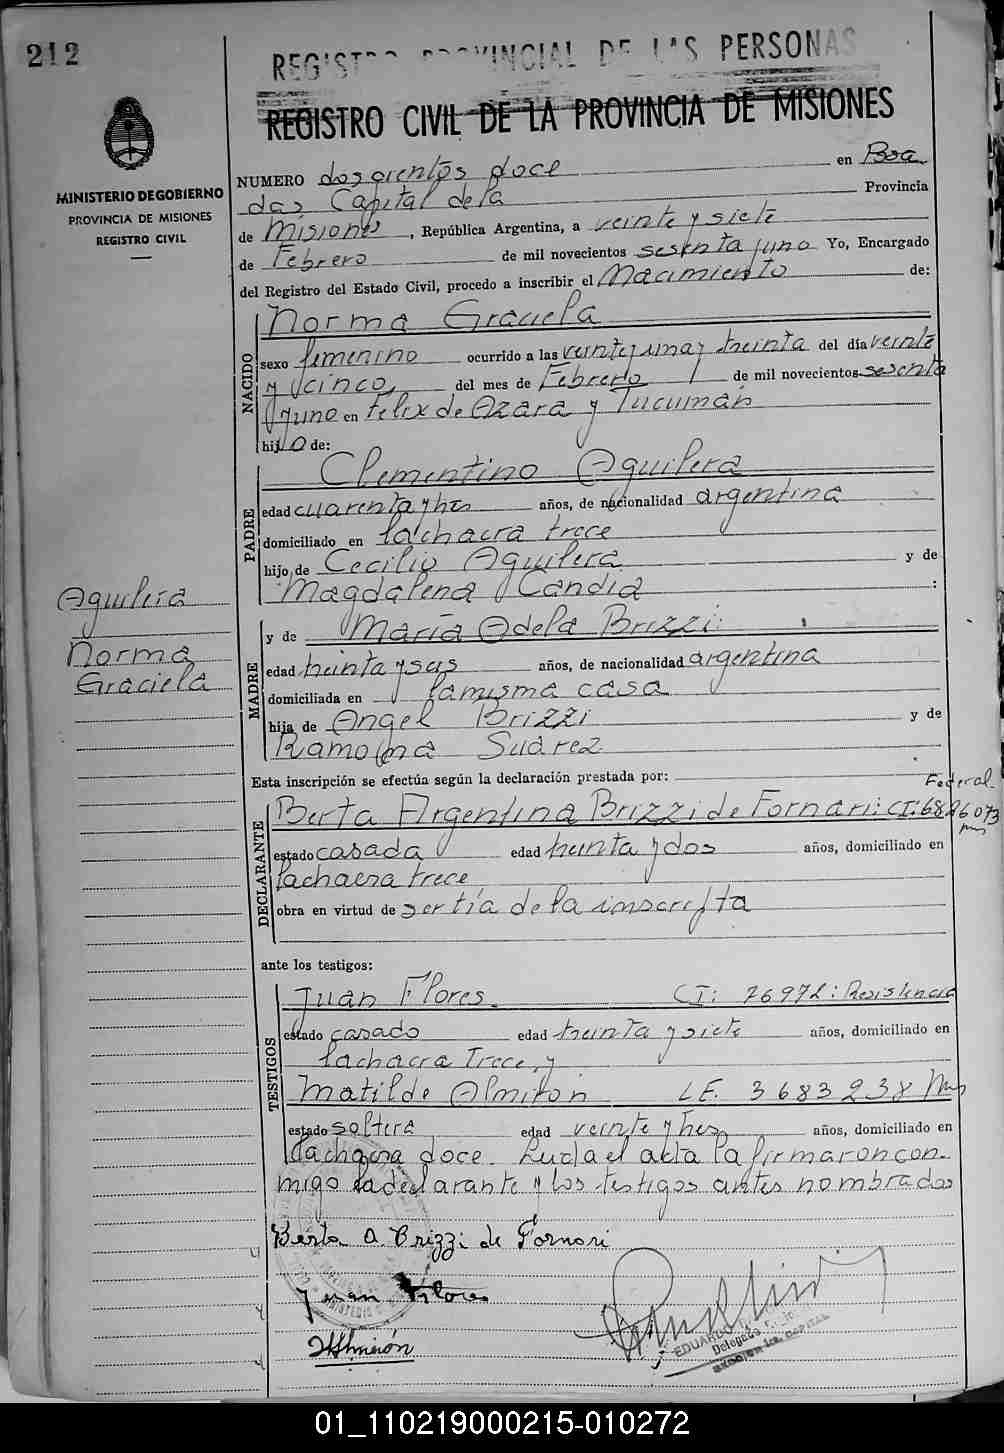 212
REGISTRO PROVINCIAL DE LAS PERSONAS
REGISTRO CIVIL DE LA PROVINCIA DE MISIONES
MINISTERIO DE GOBIERNO
PROVINCIA DE MISIONES
REGISTRO CIVIL
NUMERO doscientos doce en Posa
das Capital de la Provincia
de Misiones, República Argentina, a veinte y siete
de Febrero de mil novecientos sesenta y uno Yo, Encargado
del Registro del Estado Civil, procedo a inscribir el Nacimiento de:
NACIDO
Norma Graciela
sexo femenino ocurrido a las veinte y una y treinta del día veinte
y cinco, del mes de Febrero de mil novecientos sesenta
y uno en Felix de Azara y Tucumán
hijo de:
PADRE
Clementino Aguilera
edad cuarenta y tres años, de nacionalidad argentina
domiciliado en la chacra trece
hijo de Cecilio Aguilera y de
Magdalena Candia :
Aguilera
Norma
Graciela
MADRE
y de María Adela Brizzi
edad treinta y seis años, de nacionalidad argentina
domiciliada en la misma casa
hija de Angel Brizzi y de
Ramona Suarez
Esta inscripción se efectúa según la declaración prestada por:
Federal
DECLARANTE
Berta Argentina Brizzi de Fornari: CI: 6896073
estado casada edad treinta y dos años, domiciliado en
la chacra trece
obra en virtud de ser tía de la inscripta
ante los testigos:
TESTIGOS
Juan Flores. CI: 76972: Resistencia
estado casado edad treinta y siete años, domiciliado en
la chacra Trece, y
Matilde Almiron LE. 3683238
estado soltera edad veinte y tres años, domiciliado en
la chacra doce. Leída el acta la firmaron con
migo la declarante y los testigos antes nombrados
Berta A Brizzi de Fornari
Juan Flores
MAlmirón
EDUARDO
Delegado
CAPITAL
01_110219000215-010272